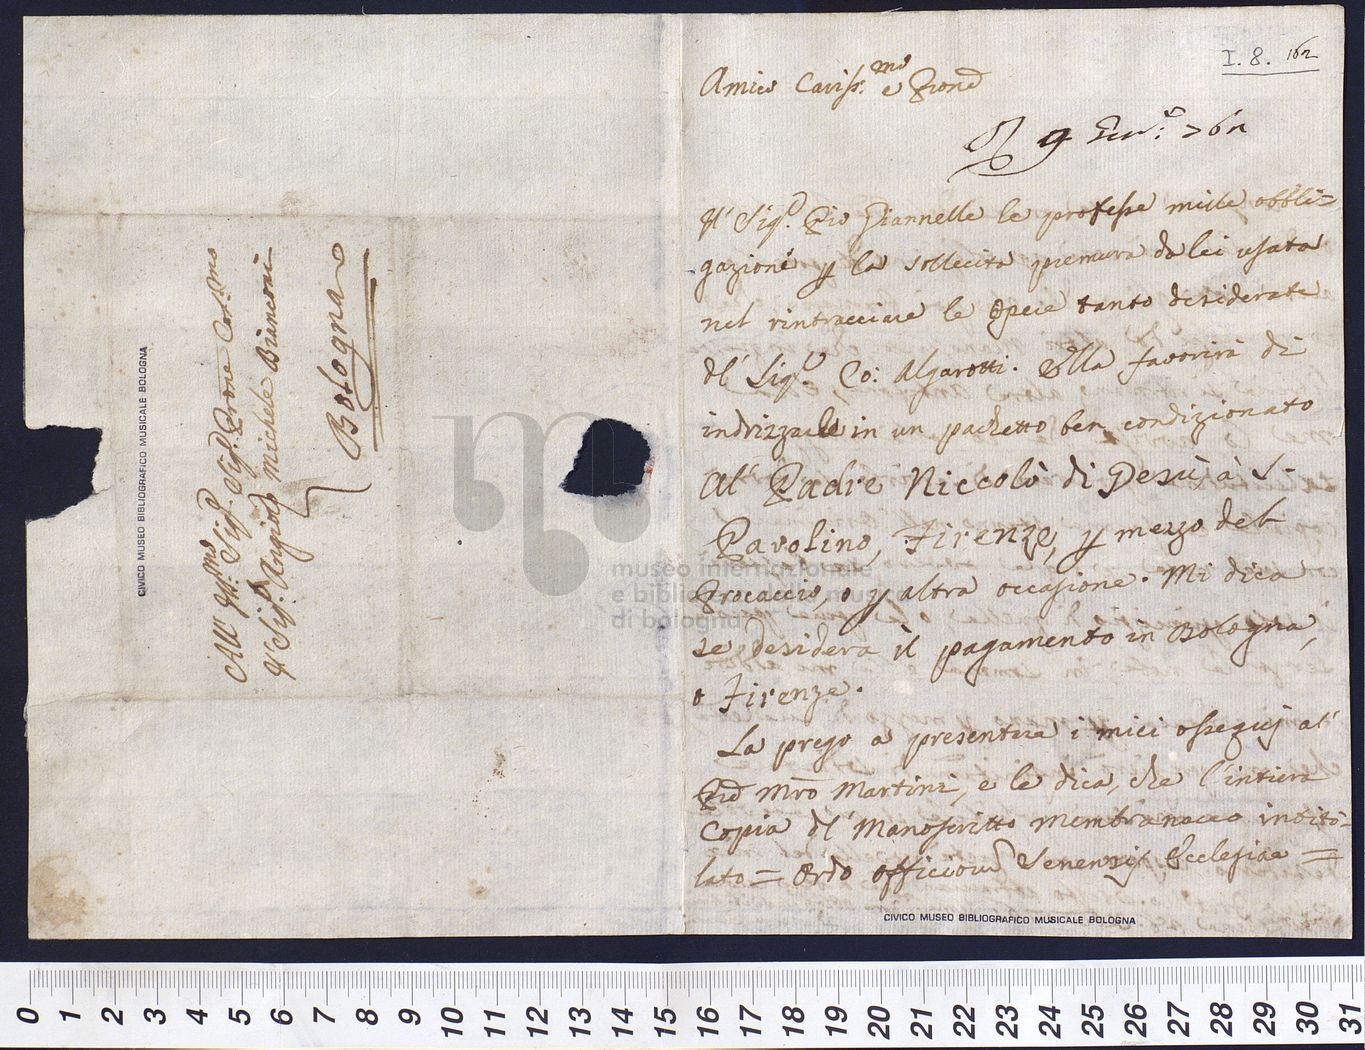 I. 8. 162
Amico Cariss.mo e Prone
9 762
Il Sig.r Pio Giannelli le professe mille obbli=
gazioni p la sollecita premura da lei usata
nel rintracciare le Opere tanto desiderate
del Sig.r Co: Algarotti. Ella favorirà di
indrizzarle in un pachetto ben condizionato
Al Padre Niccolò di Gesù à S.
Pavolino, Firenze, p mezzo del
Procaccio, o p altra occasione. Mi dica
se desidera il pagamento in Bologna,
o Firenze.
La prego a presentare i miei ossequj al
Pre Mro Martini, e le dica, che l'intiera
Copia del Manoscritto membranaceo intito=
lato = Ordo officiorum Senensis Ecclesiae =
CIVICO MUSEO BIBLIOGRAFICO MUSICALE BOLOGNA
All' Ill.mo Sig.r Sig.r Prone Col.mo
Il Sig.r Angiolo Michele Bianconi
Bologna
CIVICO MUSEO BIBLIOGRAFICO MUSICALE BOLOGNA
museo internazionale
e biblioteca della musica
di bologna
0 1 2 3 4 5 6 7 8 9 10 11 12 13 14 15 16 17 18 19 20 21 22 23 24 25 26 27 28 29 30 31